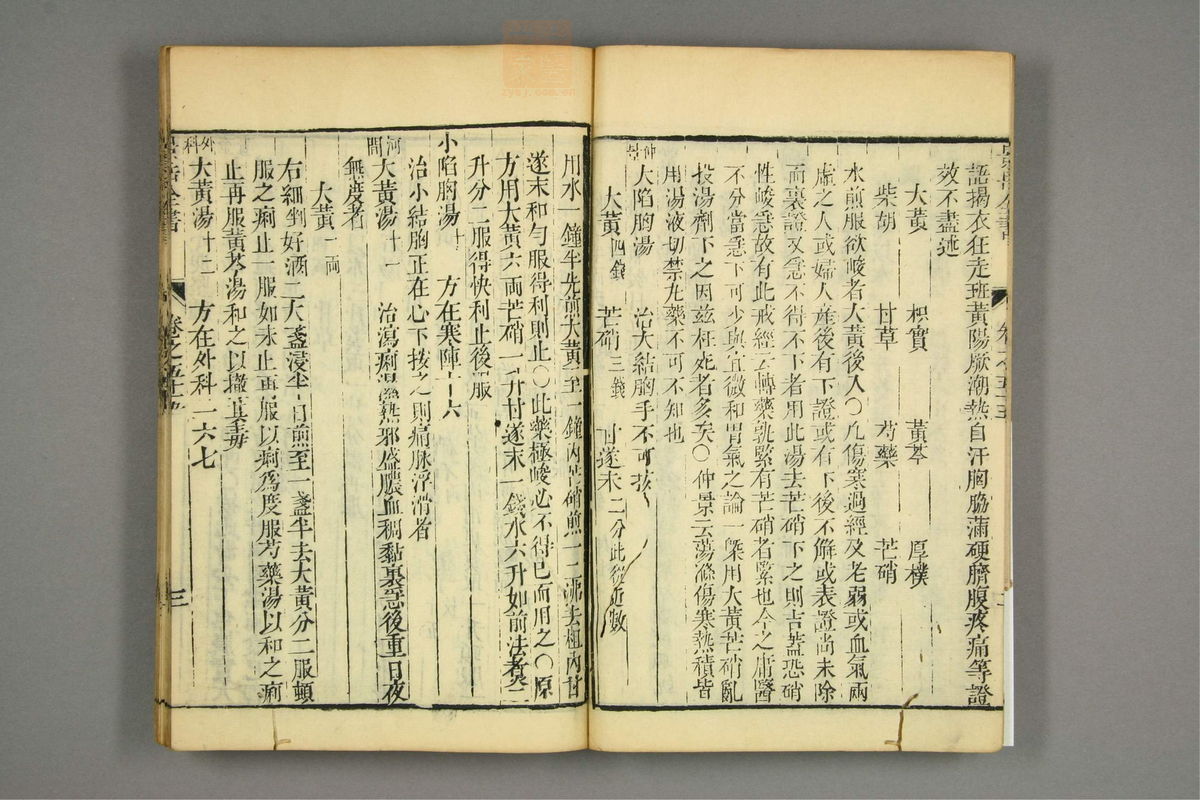 語揭衣狂走班黃陽厥潮熱自汗胸脇滿硬臍腹疼痛等證
效不盡述
大黃 枳實 黃芩 厚樸
柴胡 甘草 芍藥 芒硝
水煎服欲峻者大黃後入○凢傷寒過經及老弱或血氣兩
虛之人或婦人產後有下證或有下後不解或表證尚未除
而裏證又急不得不下者用此湯去芒硝下之則吉葢恐硝
性峻急故有此戒經云轉藥孰緊有芒硝者緊也今之庸醫
不分當急下可少與宜微和胃氣之論一槩用大黃芒硝亂
投湯劑下之因兹枉死者多矣○仲景云蕩滌傷寒熱積皆
用湯液切禁丸藥不可不知也
仲景
大陷胸湯 治大結胸手不可按
大黃四錢 芒硝三錢 甘遂末二分此從近數
用水一鐘半先煎大黃至一鐘內芒硝煎一二沸去柤內甘
遂末和勻服得利則止○此藥極峻必不得已而用之○原
方用大黃六両芒硝一升甘遂末一錢水六升如前法煑二
升分二服得快利止後服
小陷胸湯十 方在寒陣十六
治小結胸正在心下按之則痛脉浮滑者
河間
大黃湯十一 治瀉痢濕熱邪盛膿血稠黏裏急後重日夜
無度者
大黃一両
右細剉好酒二大盞浸半日煎至一盞半去大黃分二服頓
服之痢止一服如未止再服以痢爲度服芍藥湯以和之痢
止再服黃芩湯和之以撤其毒
外科
大黃湯十二 方在外科一六七
景岳全書 卷之五十五 三